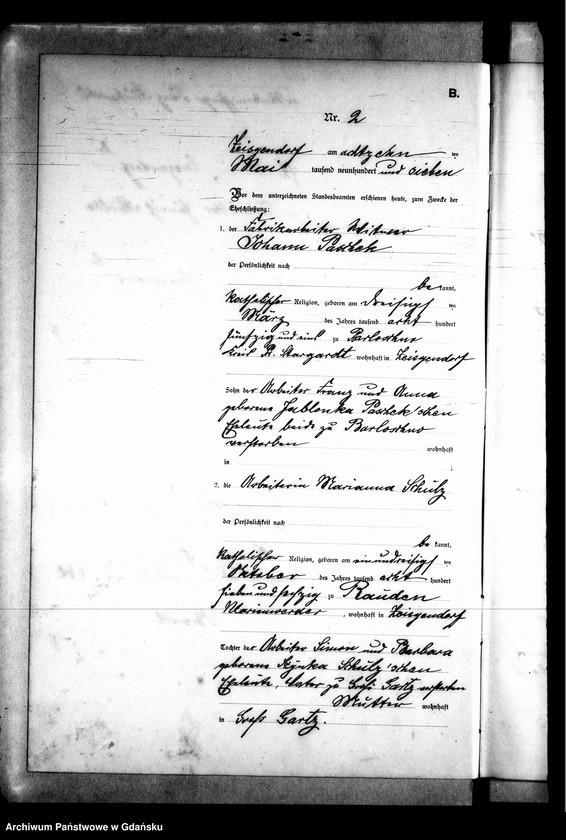 B.
Nr. 2
Zeisgendorf am achtzehn ten
Mai tausend neunhundert und sieben
Vor dem unterzeichneten Standesbeamten erschienen heute, zum Zwecke der
Eheschließung:
1. der Fabrikarbeiter Witwer
Johann Paschek
der Persönlichkeit nach
be kannt,
katholischer Religion, geboren am dreisigs ten
März des Jahres tausend acht hundert
fünfzig und eins zu Barloschno
Kreis Pr. Stargardt wohnhaft in Zeisgendorf
Sohn der Arbeiter Franz und Anna
geborene Jablonka Paschek'schen
Eheleute beide zu Barloschno
verstorben wohnhaft
in
2. die Arbeiterin Marianna Schulz
der Persönlichkeit nach
be kannt,
katholischer Religion, geboren am einunddreisigs ten
Oktober des Jahres tausend acht hundert
sieben und sechzig zu Rauden
Marienwerder, wohnhaft in Zeisgendorf
Tochter der Arbeiter Simon und Barbara
geborene Schulz'schen
Eheleute, Vater zu Groß Gartz verstorben
Mutter wohnhaft
in Groß Gartz.
Archiwum Państwowe w Gdańsku